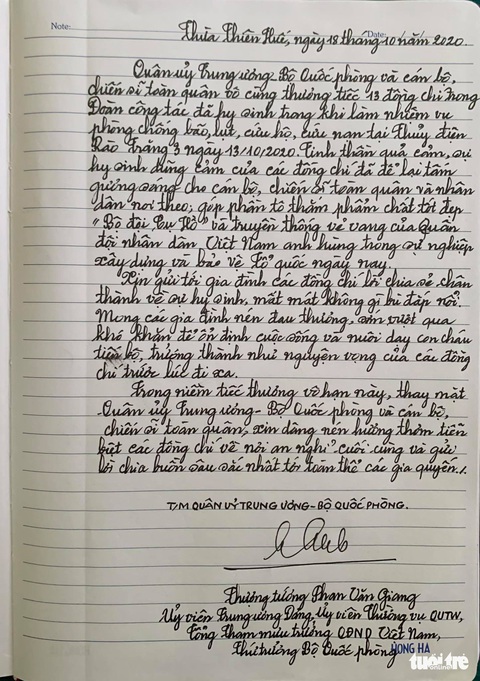 Note:
Date:
Thừa Thiên Huế, ngày 18 tháng 10 năm 2020.
Quân ủy Trung ương - Bộ Quốc phòng và cán bộ,
chiến sĩ toàn quân vô cùng thương tiếc 13 đồng chí trong
Đoàn công tác đã hy sinh trong khi làm nhiệm vụ
phòng chống bão, lụt, cứu hộ, cứu nạn tại Thủy điện
Rào Trăng 3 ngày 13/10/2020. Tinh thần quả cảm, sự
hy sinh dũng cảm của các đồng chí đã để lại tấm
gương sáng cho cán bộ, chiến sĩ toàn quân và nhân
dân noi theo; góp phần tô thắm phẩm chất tốt đẹp
"Bộ đội Cụ Hồ" và truyền thống vẻ vang của Quân
đội nhân dân Việt Nam anh hùng trong sự nghiệp
xây dựng và bảo vệ Tổ quốc ngày nay.
Xin gửi tới gia đình các đồng chí lời chia sẻ chân
thành về sự hy sinh, mất mát không gì bù đắp nổi.
Mong các gia đình nén đau thương, sớm vượt qua
khó khăn để ổn định cuộc sống và nuôi dạy con cháu
tiến bộ, trưởng thành như nguyện vọng của các đồng
chí trước lúc đi xa.
Trong niềm tiếc thương vô hạn này, thay mặt
Quân ủy Trung ương - Bộ Quốc phòng và cán bộ,
chiến sĩ toàn quân, xin dâng nén hương thơm tiễn
biệt các đồng chí về nơi an nghỉ cuối cùng và gửi
lời chia buồn sâu sắc nhất tới toàn thể các gia quyến./.
T/M QUÂN UỶ TRUNG ƯƠNG - BỘ QUỐC PHÒNG.
Thượng tướng Phan Văn Giang
Uỷ viên Trung ương Đảng, Uỷ viên Thường vụ QUTW,
Tổng Tham mưu trưởng QĐND Việt Nam,
Thứ trưởng Bộ Quốc phòng
HONG HA
tuổi trẻ